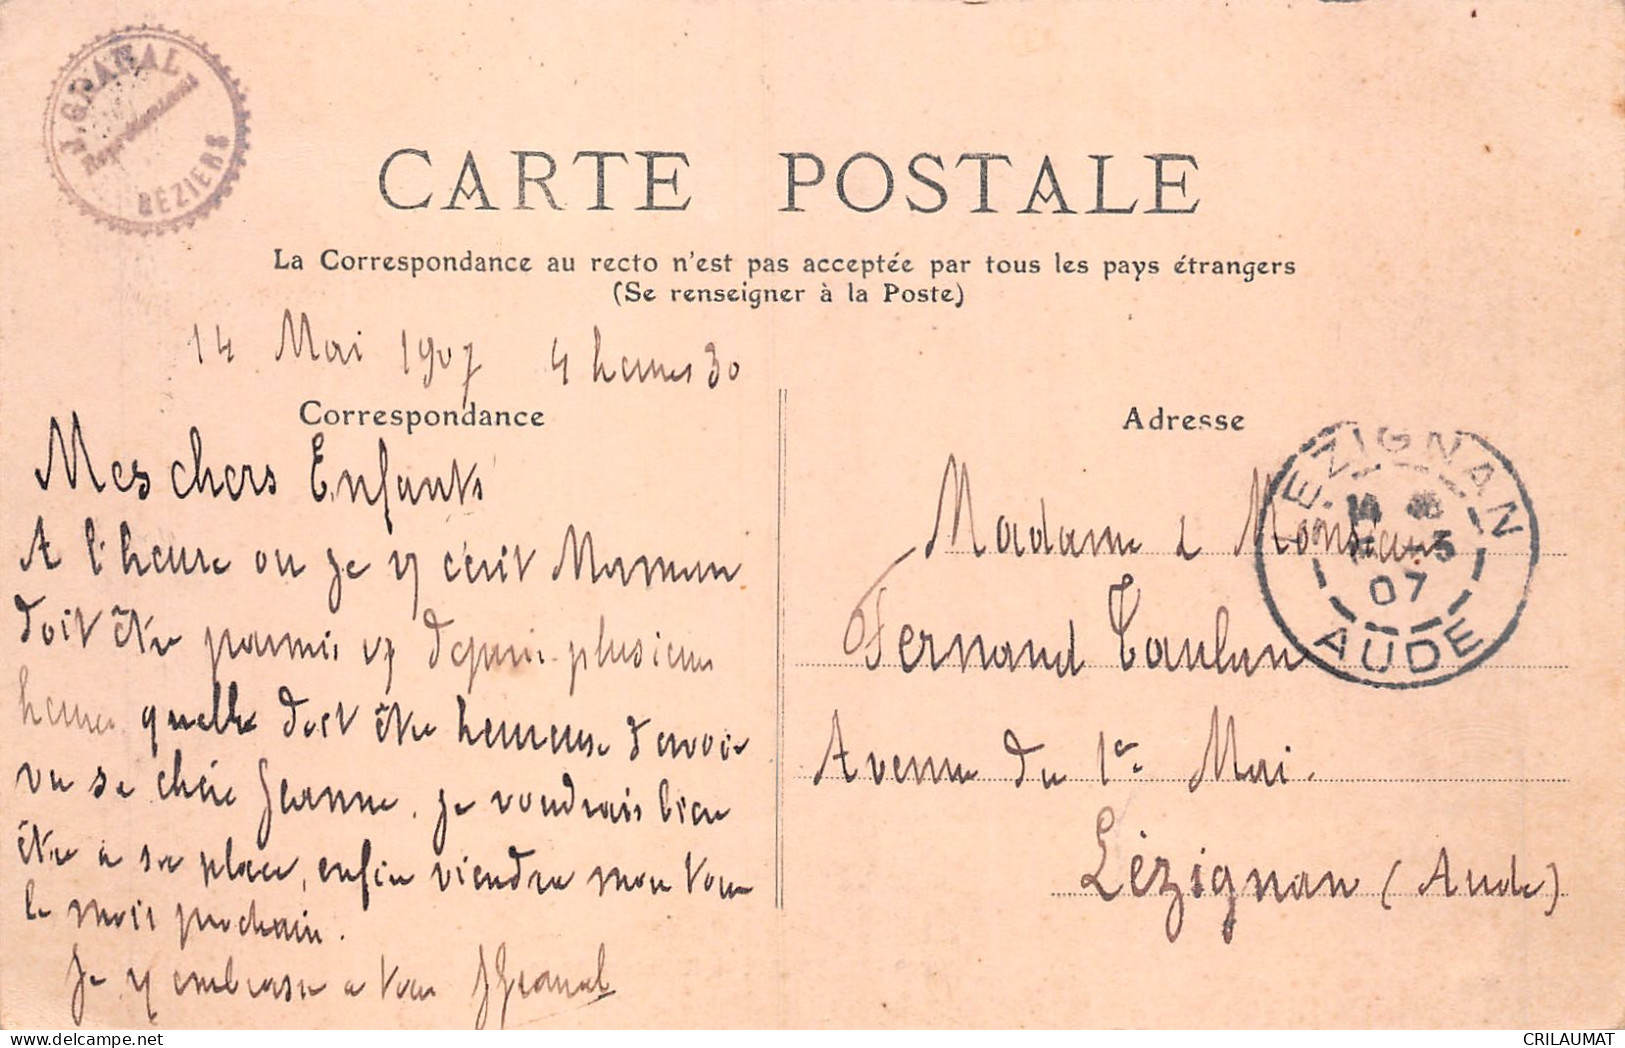 J. GRANAL
Représentant
BÉZIERS
CARTE POSTALE
La Correspondance au recto n'est pas acceptée par tous les pays étrangers
(Se renseigner à la Poste)
14 Mai 1907 4 heures 30
Correspondance
Mes chers Enfants
A l'heure ou je v/ écrit Maman
doit être parmis v/ depuis plusieurs
heures quelle doit être heureuse d'avoir
vu sa chère Jeanne. je voudrais bien
être a sa place, enfin viendra mon tour
le mois prochain.
Je v/ embrasse a tous JGranal
Adresse
Madame & Monsieur
Fernand Taulan
Avenue du 1er Mai.
Lézignan (Aude)
LEZIGNAN
14 5
07
AUDE
CRILAUMAT